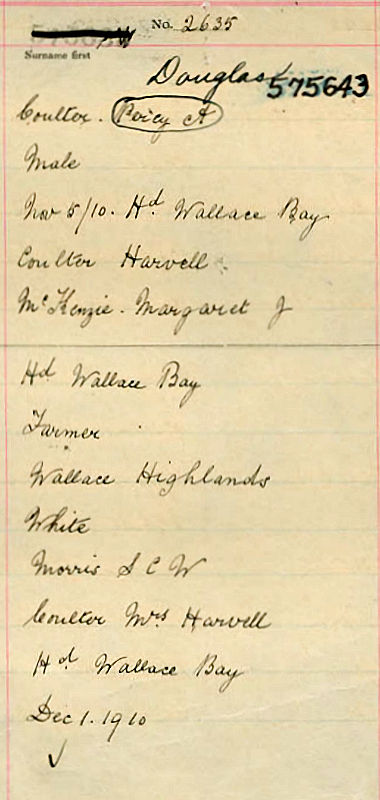 No. 2635
Surname first
Douglas
575643
Coulter. Percy A
Male
Nov 5/10. Hd Wallace Bay
Coulter Harvell
McKenzie. Margaret J
Hd Wallace Bay
Farmer
Wallace Highlands
White
Morris S C W
Coulter Mrs Harvell
Hd Wallace Bay
Dec 1. 1910